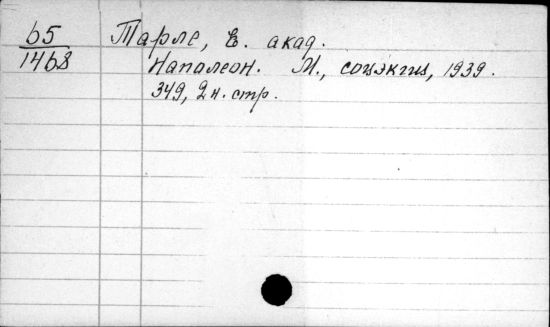 65 Тарле, Е. акад.
1468 Наполеон. М., соцэкгиз, 1939.
349, 2 н. стр.